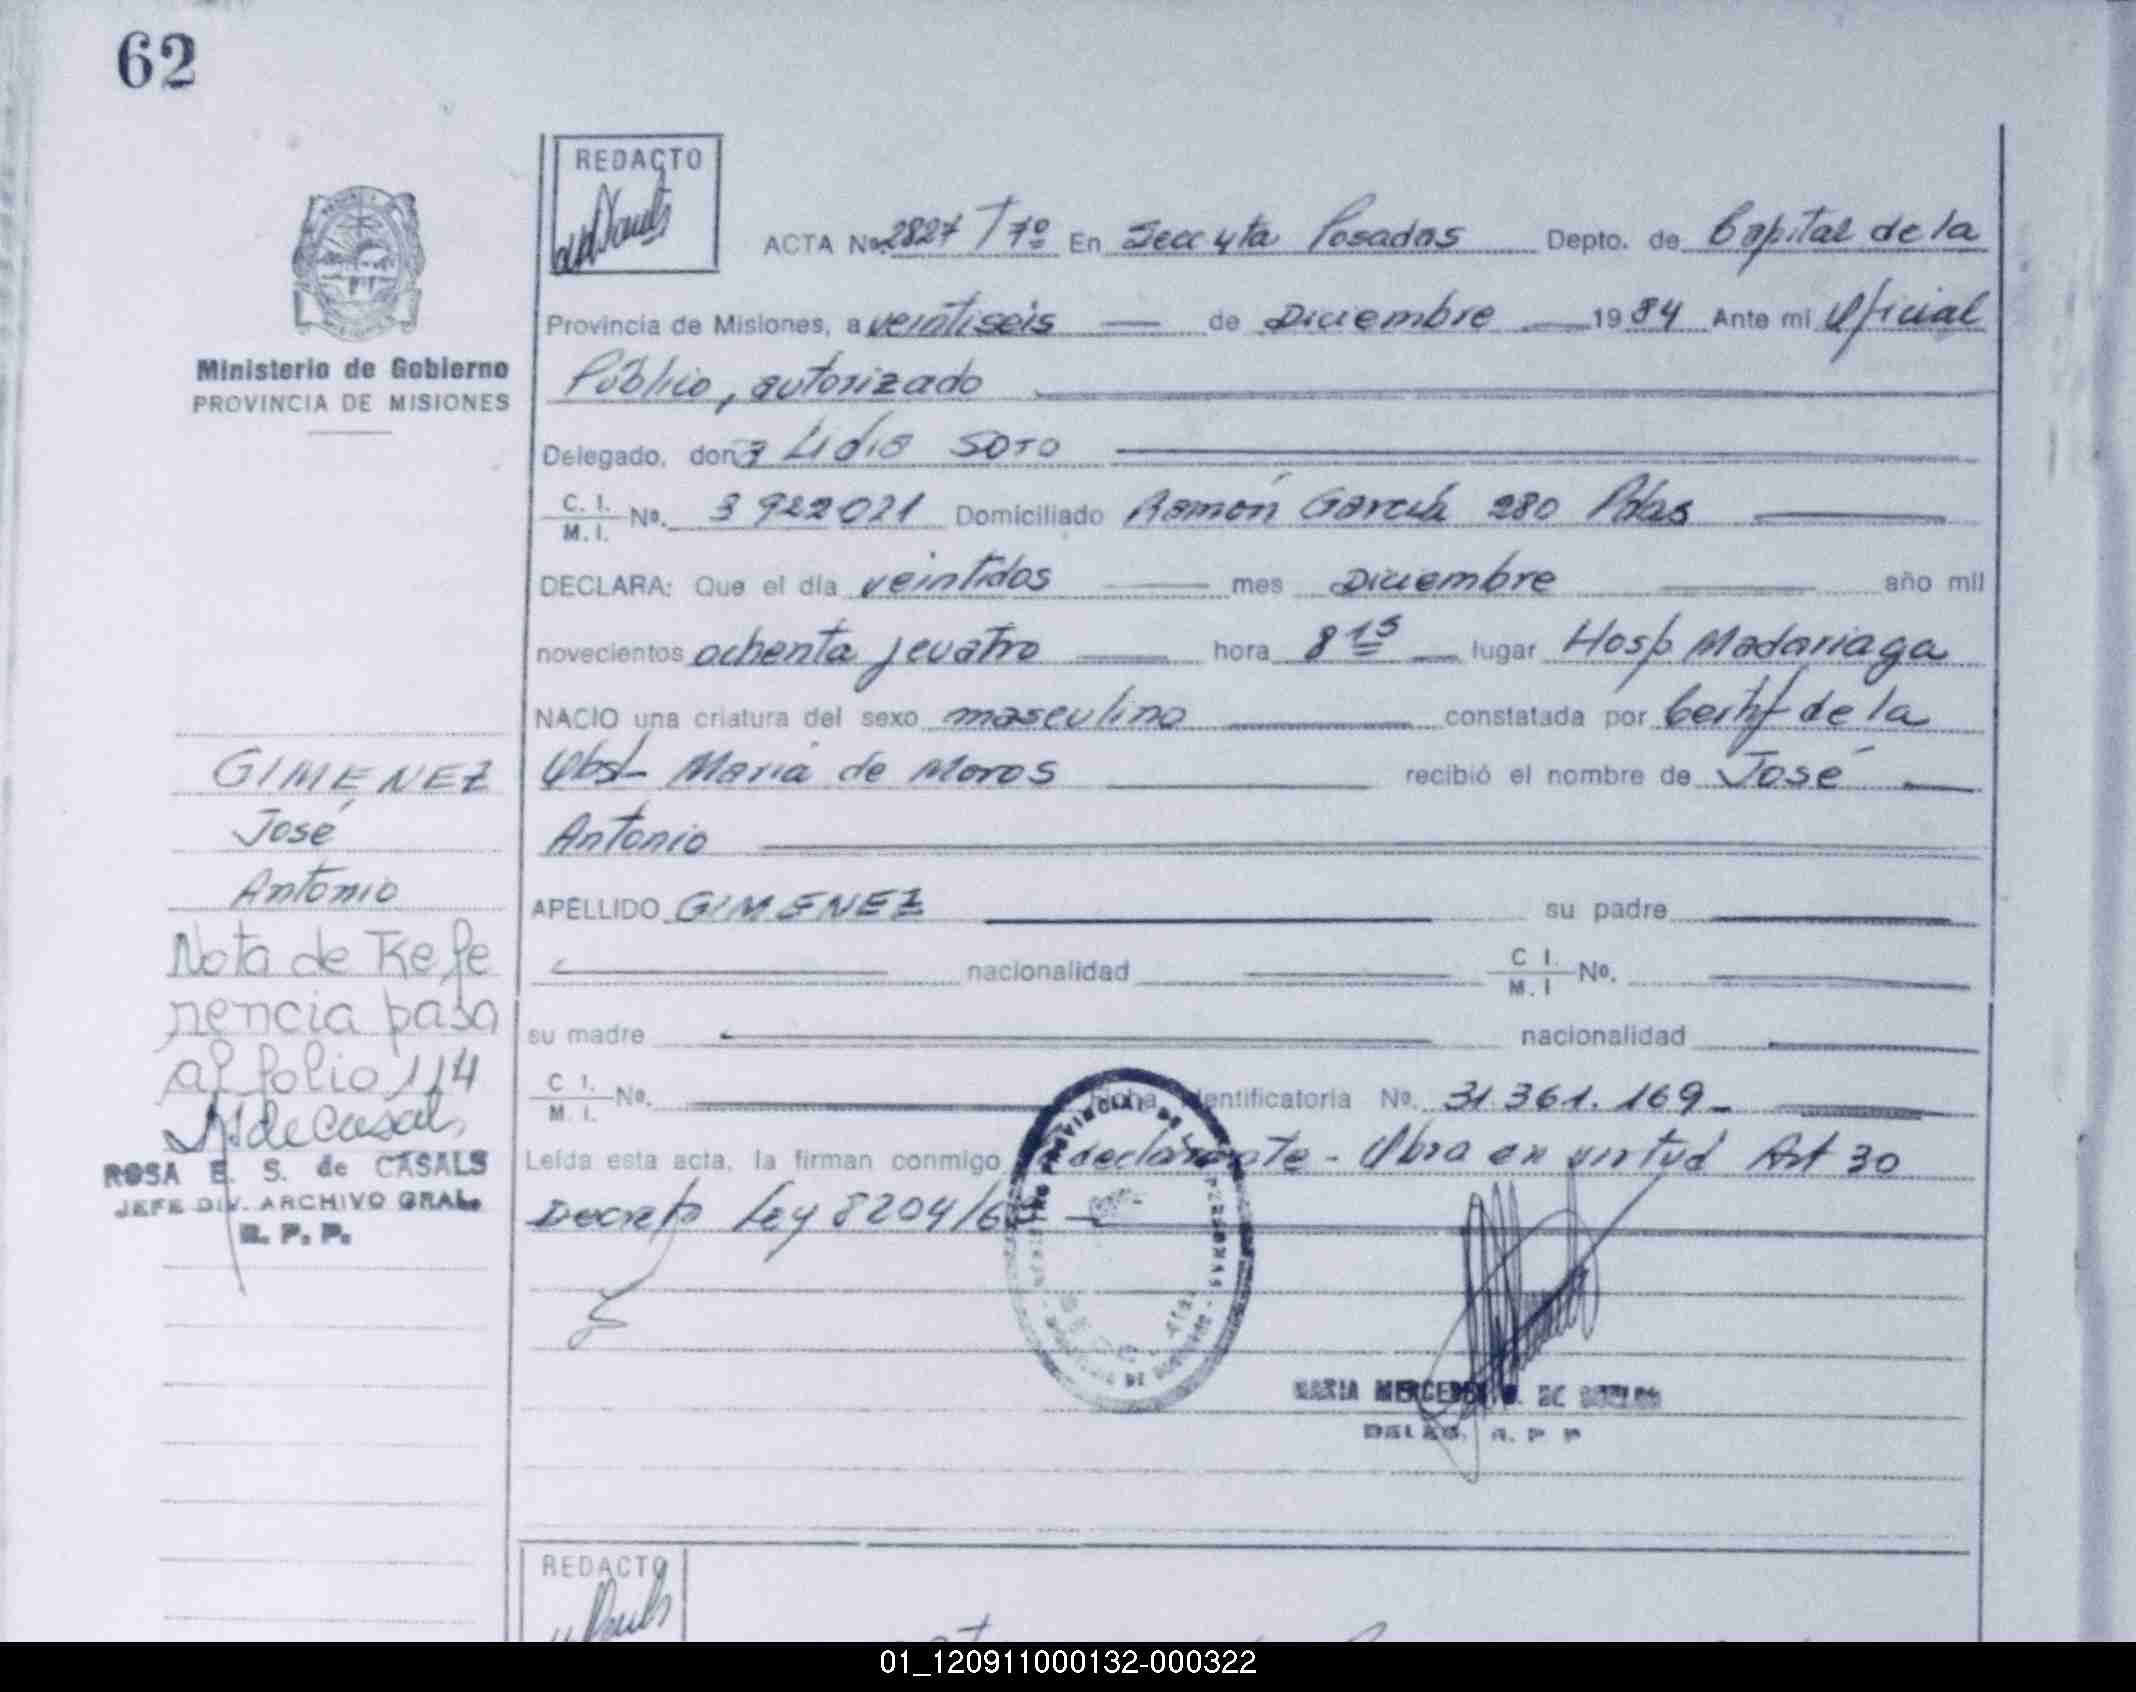 62
REDACTO
ACTA No. 2827 T 7º En Secc yta Posadas Depto. de Capital de la
Provincia de Misiones, a veintiseis de Diciembre 1984 Ante mi Oficial
Ministerio de Gobierno
PROVINCIA DE MISIONES
Público, autorizado
Delegado, don a Lidia SOTO
C. I.
M. I. No. 3 922021 Domiciliado Ramón García 280 Pdas
DECLARA: Que el día veintidos mes Diciembre año mil
novecientos ochenta y cuatro hora 8 15 lugar Hosp Madariaga
NACIO una criatura del sexo masculino constatada por Certif de la
Obst María de Moros recibió el nombre de José
Antonio
APELLIDO GIMENEZ su padre
nacionalidad C I. M. I No.
su madre nacionalidad
C I. M. I. No. Ficha Identificatoria No. 31.361.169
Leída esta acta, la firman conmigo declarante - Obra en virtud Art 30
Decreto Ley 8204/6
GIMENEZ
José
Antonio
Nota de Refe
rencia pasa
al folio 114
ROSA E. S. de CASALS
JEFE DIV. ARCHIVO GRAL.
R. P. P.
PROVINCIAL DE
MARIA MERCEDES DE
DELEG. R. P P
REDACTO
01_120911000132-000322